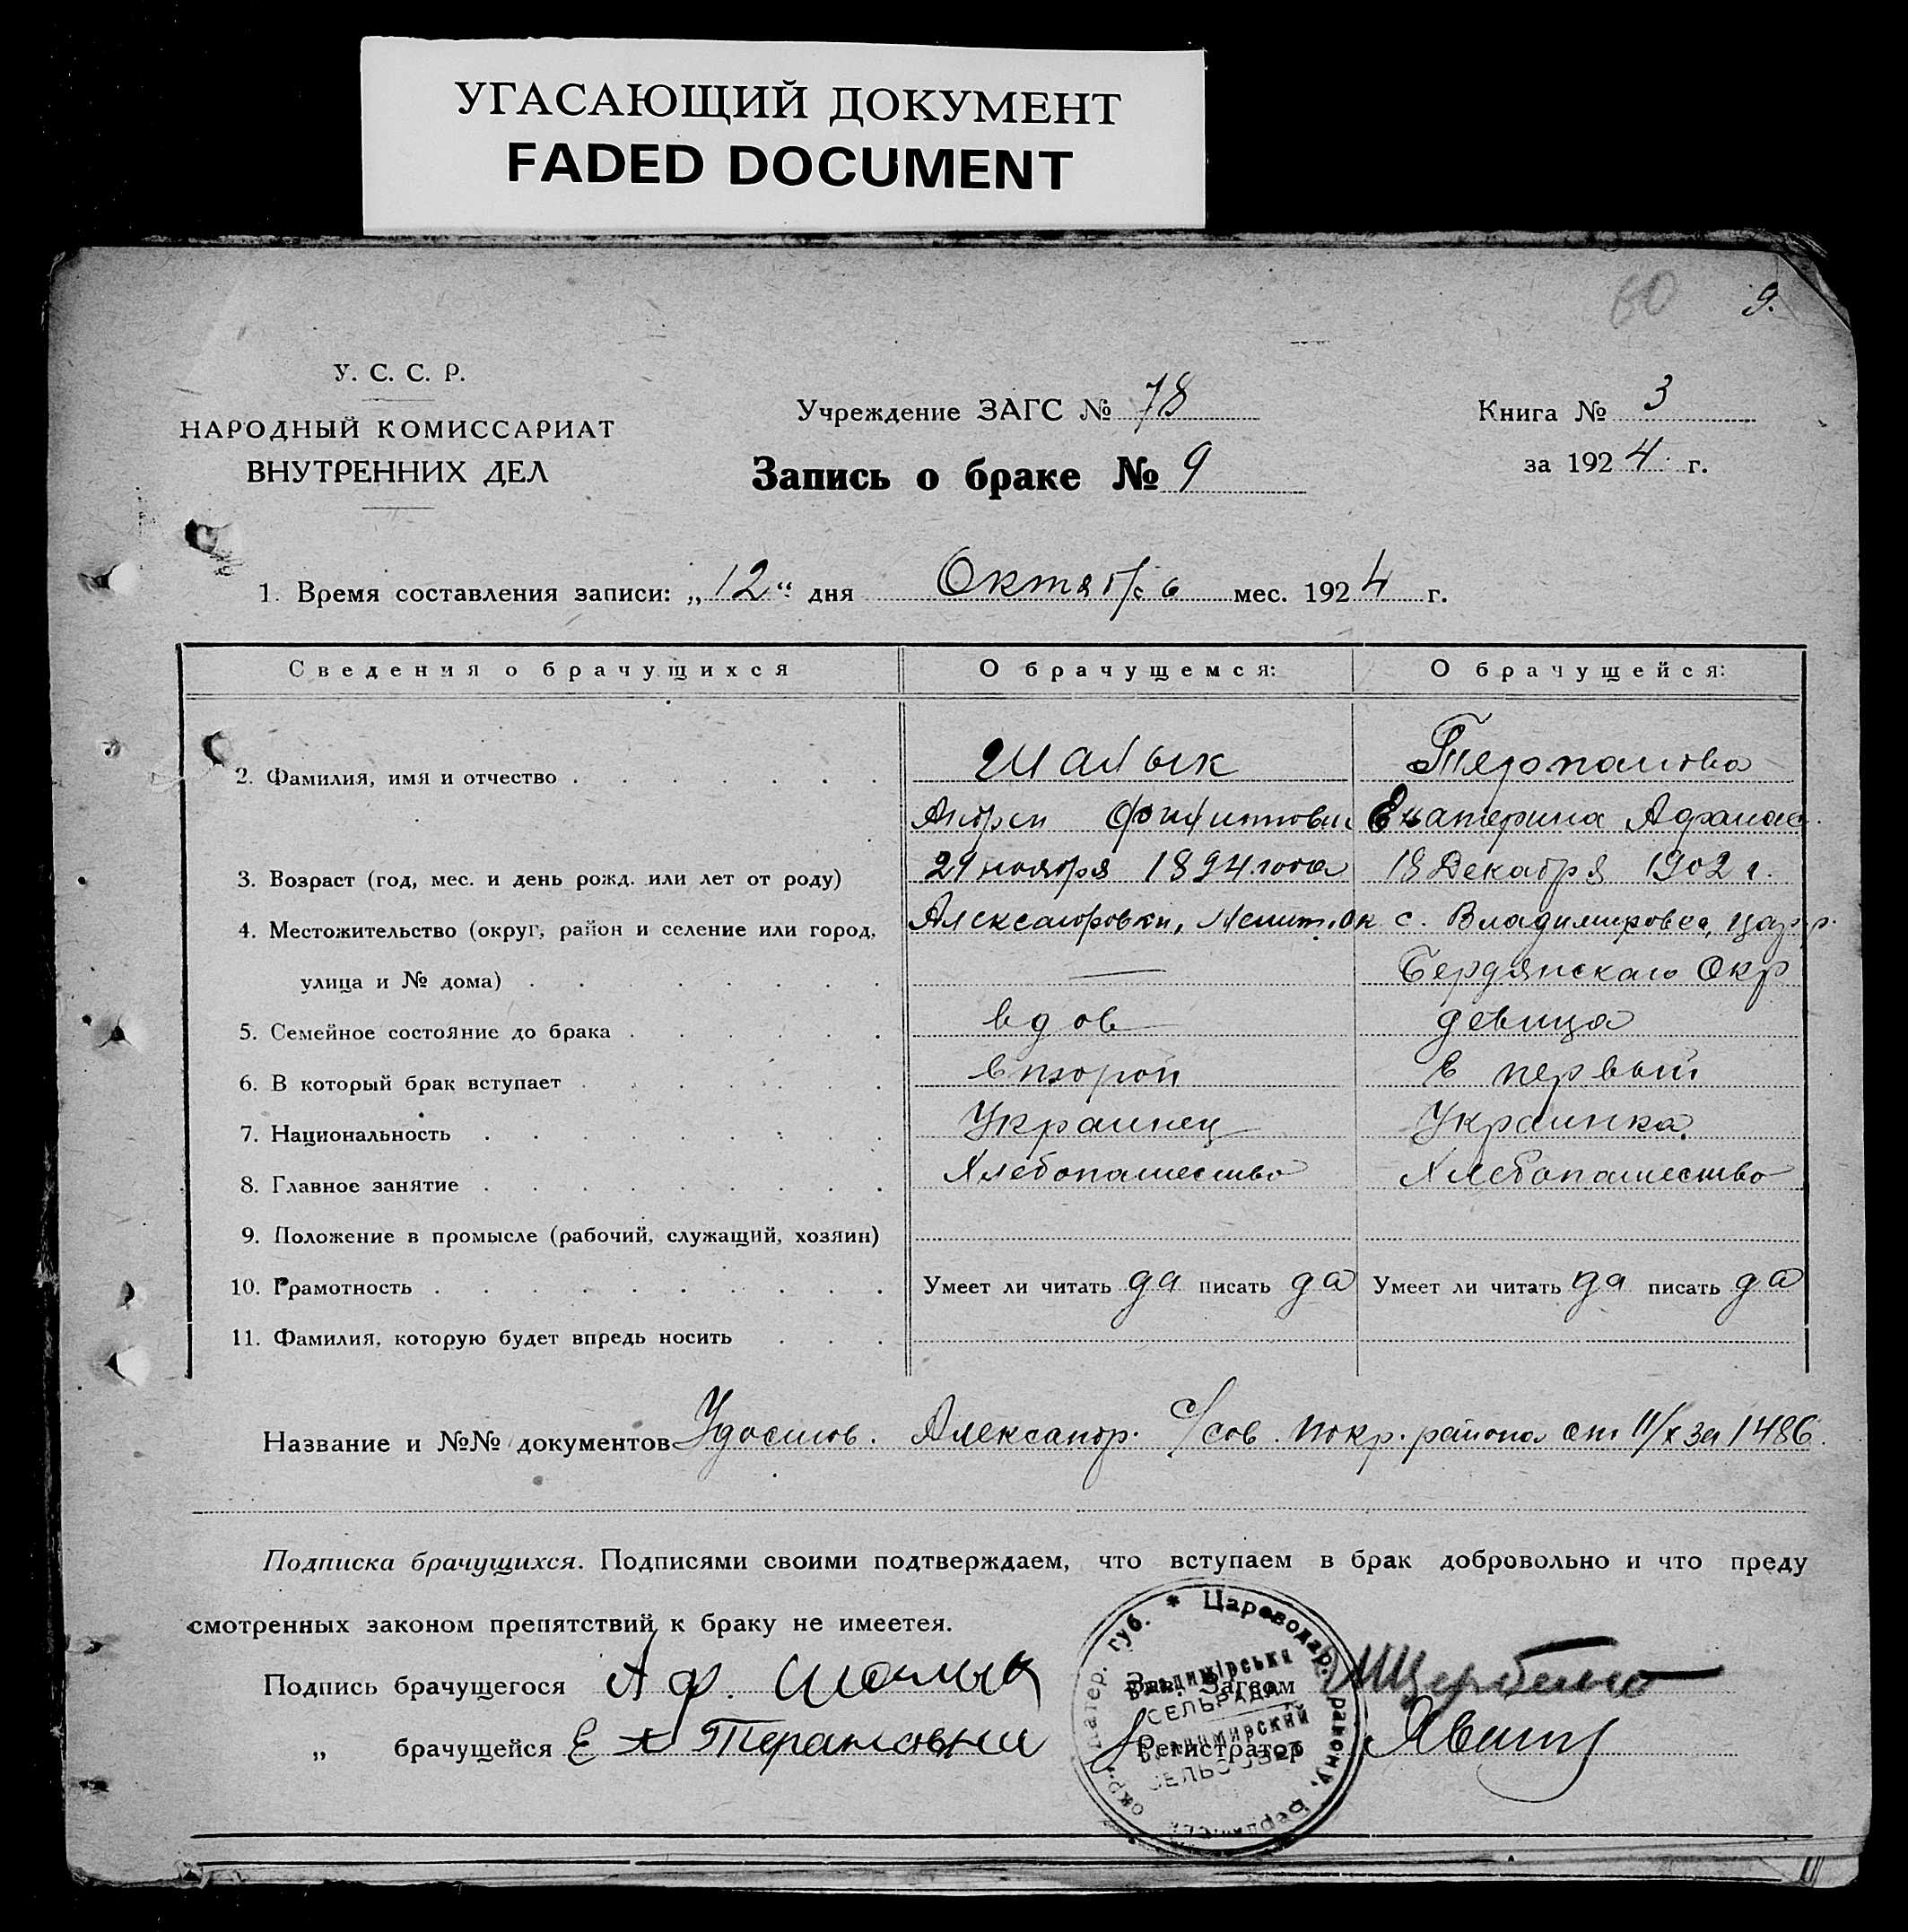 УГАСАЮЩИЙ ДОКУМЕНТ
FADED DOCUMENT
60 9.
У. С. С. Р.
НАРОДНЫЙ КОМИССАРИАТ
ВНУТРЕННИХ ДЕЛ
Учреждение ЗАГС № 78
Запись о браке № 9
Книга № 3
за 1924 г.
1. Время составления записи: „12“ дня Октября мес. 1924 г.
Сведения о брачущихся О брачущемся: О брачущейся:
2. Фамилия, имя и отчество
Екатерина Афанас.
3. Возраст (год, мес. и день рожд. или лет от роду) 29 ноября 1894 года 18 Декабря 1902 г.
4. Местожительство (округ, район и селение или город, с. Владимировка, Цар. р.
улица и № дома) — Бердянскаго Окр
5. Семейное состояние до брака вдов девица
6. В который брак вступает второй в первый
7. Национальность Украинец Украинка.
8. Главное занятие Хлебопашество Хлебопашество
9. Положение в промысле (рабочий, служащий, хозяин)
10. Грамотность Умеет ли читать да писать да Умеет ли читать да писать да
11. Фамилия, которую будет впредь носить
Название и №№ документов Удостов. Александр. с/сов. Покр. района от 11/X за 1486.
Подписка брачущихся. Подписями своими подтверждаем, что вступаем в брак добровольно и что преду
смотренных законом препятствий к браку не имеетея.
Подпись брачущегося А Ф. Зав. Загсом
„ брачущейся Регистратор
* Цареводар. району,
окр.
губ.
Владимірська
СЕЛЬРАДА
Владимирский
СЕЛЬСОВЕТ